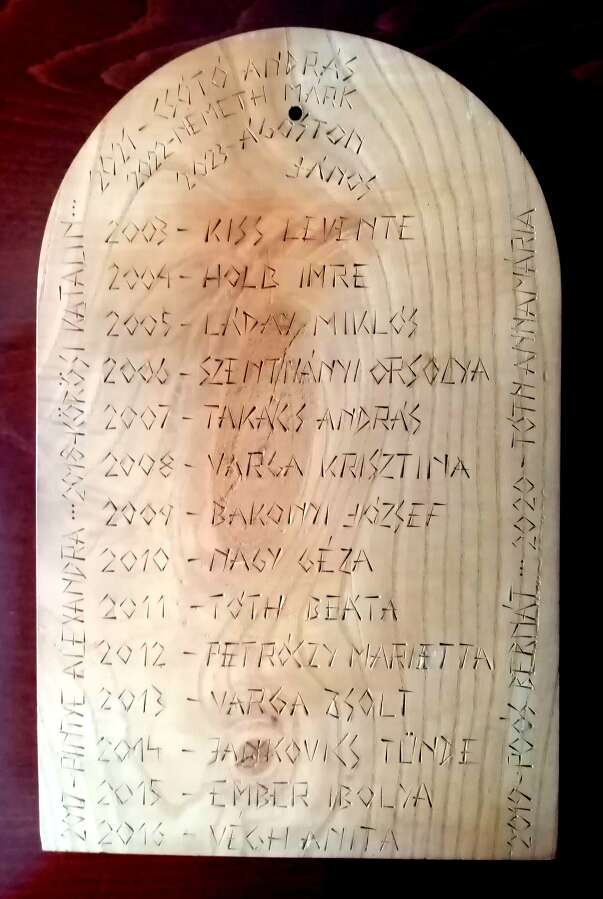 2021-CSÓTÓ ANDRÁS
2022-NÉMETH MÁRK
2023-ÁGOSTON
JÁNOS
2003 - KISS LEVENTE
2004 - HOLB IMRE
2005 - LÁDAY MIKLÓS
2006 - SZENTIVÁNYI ORSOLYA
2007 - TAKÁCS ANDRÁS
2008 - VARGA KRISZTINA
2009 - BAKONYI JÓZSEF
2010 - NAGY GÉZA
2011 - TÓTH BEÁTA
2012 - PETRÓCZY MARIETTA
2013 - VARGA ZSOLT
2014 - JANKOVICS TÜNDE
2015 - EMBER IBOLYA
2016 - VÉGH ANITA
2017-PINTYE ALEXANDRA ... 2018-KŐRÖSI KATALIN...
2019-POÓS BERNÁT ... 2020 - TÓTH ANNAMÁRIA